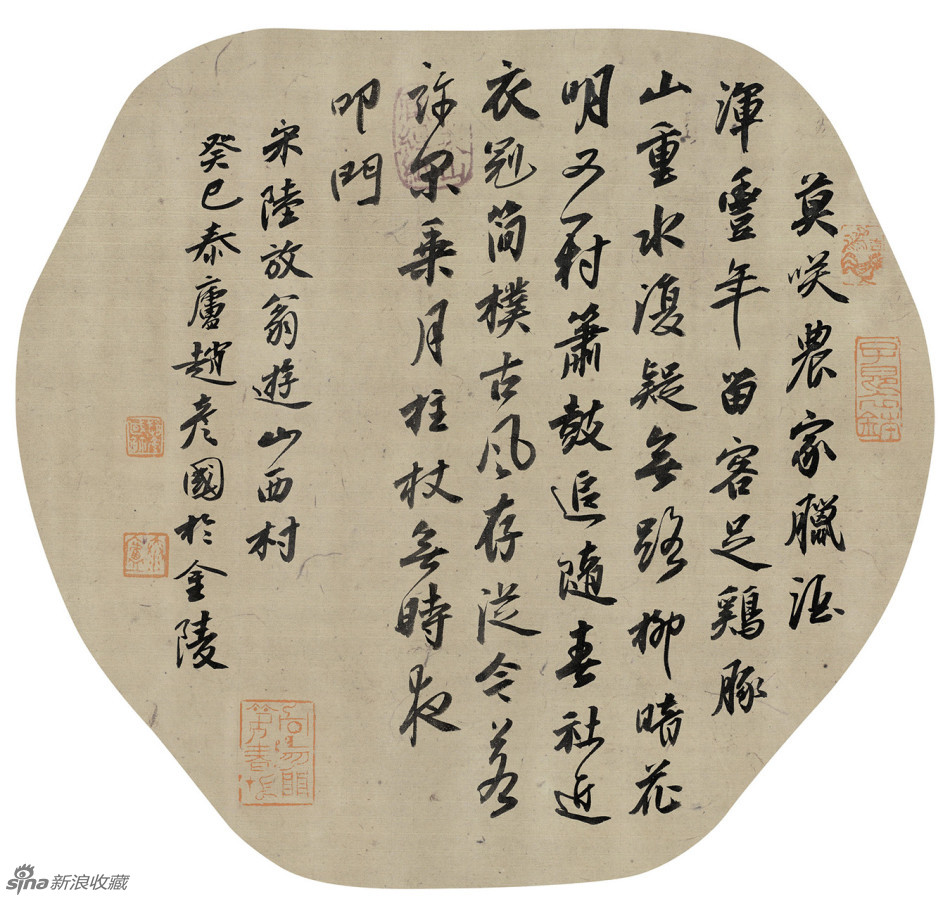 莫咲農家臘酒
渾豐年留客足鷄豚
山重水復疑無路柳暗花
明又一村簫鼓追隨春社近
衣冠简樸古风存從今若
許閑乘月拄杖無時夜
叩門
宋陸放翁遊山西村
癸巳泰廬趙彥國於金陵
sina新浪收藏